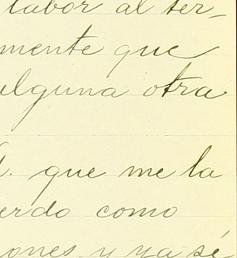 labor al ter-
mente que
alguna otra
que me la
erdo como
ones y ya sé